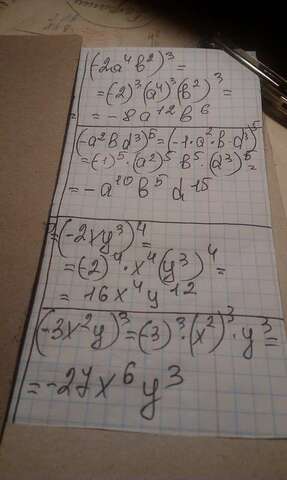 (-2a⁴b²)³=
=(-2)³(a⁴)³(b²)³=
=-8a¹²b⁶
(-a²bd³)⁵=(-1·a²·b·d³)⁵
=(-1)⁵·(a²)⁵b⁵·(d³)⁵=
=-a¹⁰b⁵d¹⁵
=(-2xy³)⁴=
=(-2)⁴·x⁴(y³)⁴=
=16x⁴y¹²
(-3x²y)³=(-3)³·(x²)³·y³=
=-27x⁶y³